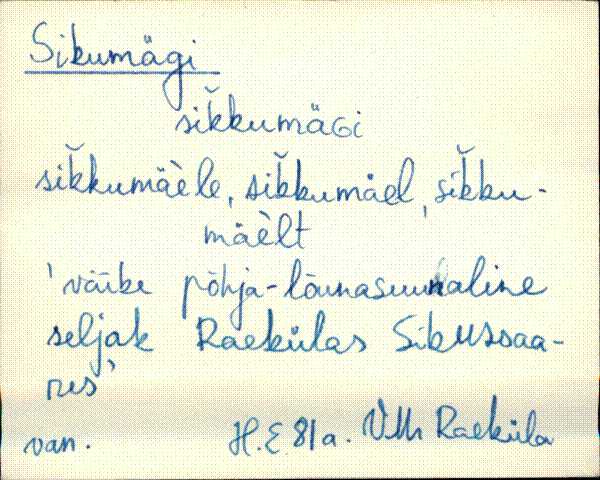 Sikumägi
sĭkkumäɢi
sĭkkumäèle, sĭkkumäel, sĭkku-
mäèlt
'väike põhja-lõunasuunaline
seljak Raekülas Sikussaa-
res'
van. H.E. 81 a. VMr Raeküla